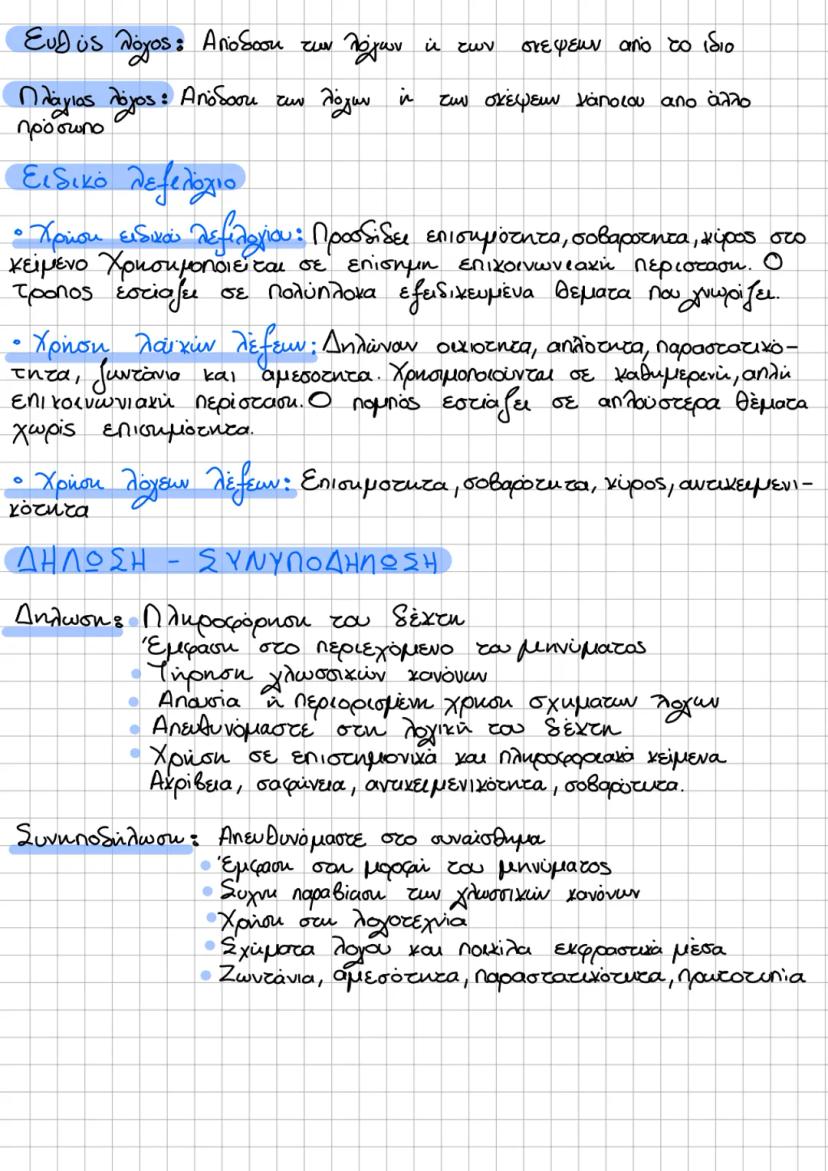 Ευθύς λόγος: Απόδοση των λόγων ή των σκέψεων από το ίδιο
Πλάγιος λόγος: Απόδοση των λόγων ή των σκέψεων κάποιου απο άλλο
πρόσωπο
Ειδικό λεξιλόγιο
• Χρήση ειδικού λεξιλογίου: Προσδίδει επισημότητα, σοβαρότητα, κύρος στο
κείμενο Χρησημοποιείται σε επίσημη επικοινωνιακή περισταση. Ο
τροπος εστιάζει σε πολύπλοκα εξειδικευμένα θέματα που γνωρίζει.
• Χρήση λαϊκών λέξεων: Δηλώνουν οικιοτητα, απλότητα, παραστατικό-
τητα, ζωντάνια και αμεσοτητα. Χρησιμοποιούνται σε καθημερινή, απλή
επικοινωνιακή περίσταση. Ο πομπός εστιάζει σε απλούστερα θέματα
χωρίς επισημότητα.
• Χρήση λόγιων λέξεων: Επισημοτητα, σοβαρότητα, κύρος, αντικειμενι-
κότητα
ΔΗΛΩΣΗ - ΣΥΝΥΠΟΔΗΛΩΣΗ
Δηλωση: • Πληροφόρηση του δέκτη
Έμφαση στο περιεχόμενο του μηνύματος
• Τήρηση γλωσσικών κανόνων
• Απουσία ή περιορισμένη χρηση σχηματων λογων
• Απευθυνόμαστε στη λογική του δέκτη
• Χρήση σε επιστημονικά και πληροφοριακά κείμενα
Ακρίβεια, σαφήνεια, αντικειμενικότητα, σοβαρότητα.
Συνηποδήλωση: Απευθυνόμαστε στο συναίσθημα
• Έμφαση στη μορφή του μηνύματος
• Συχνη παραβίαση των γλωσσικών κανόνων
• Χρήση στη λογοτεχνία
• Σχήματα λογου και ποικίλα εκφραστικά μέσα
• Ζωντάνια, αμεσότητα, παραστατικότητα, πρωτοτυπία